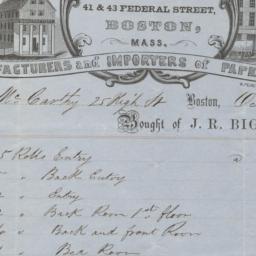 41 & 43 FEDERAL STREET,
BOSTON,
MASS.
FACTURERS AND IMPORTERS OF PAPE
Mc Carthy 25 High St Boston,
Bought of J. R. BIG
5 Rolls Entry
" Back Entry
" Entry
" Back Room 1st floor
" Back and front Room
" Bed Room